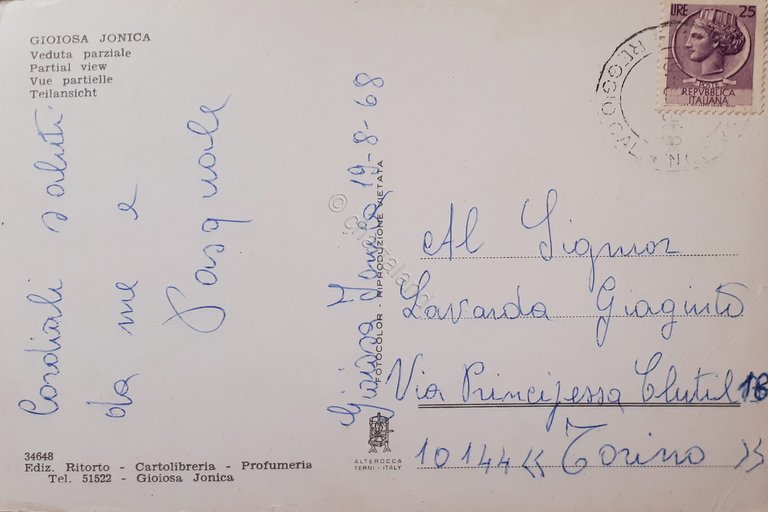 GIOIOSA JONICA
Veduta parziale
Partial view
Vue partielle
Teilansicht
Cordiali saluti
da me e
Pasquale
34648
Ediz. Ritorto - Cartolibreria - Profumeria
Tel. 51522 - Gioiosa Jonica
Gioiosa Jonica 19-8-68
FOTOCOLOR - RIPRODUZIONE VIETATA
ALTEROCCA
TERNI - ITALY
LIRE 25
POSTE
REPVBBLICA
ITALIANA
REGGIO
Al Signor
Lavarda Giaginto
Via Principessa Clutil 18
10144 « Torino »